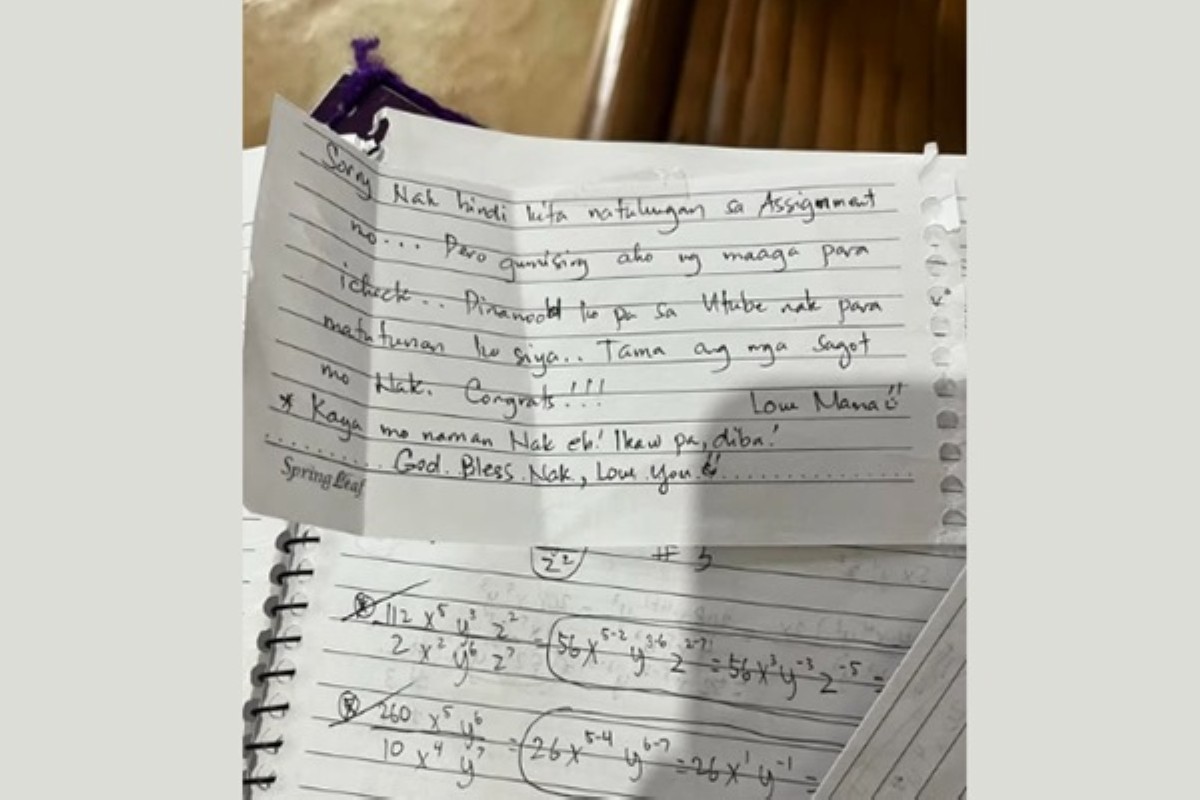 Sorry Nak hindi kita natulungan sa Assignment
mo... Pero gumising ako ng maaga para
icheck.. Pinanood ko pa sa Utube nak para
matutunan ko siya.. Tama ang mga sagot
mo Nak. Congrats!!!
Love Mama
* Kaya mo naman Nak eh! Ikaw pa, diba!
God Bless Nak, Love you!!
Spring Leaf
z²
# 3
112 x⁵ y³ z² / 2 x² y⁶ z⁷ = 56x⁵⁻² y³⁻⁶ z²⁻⁷ = 56x³y⁻³z⁻⁵ =
260 x⁵ y⁶ / 10 x⁴ y⁷ = 26x⁵⁻⁴ y⁶⁻⁷ = 26x¹y⁻¹ =